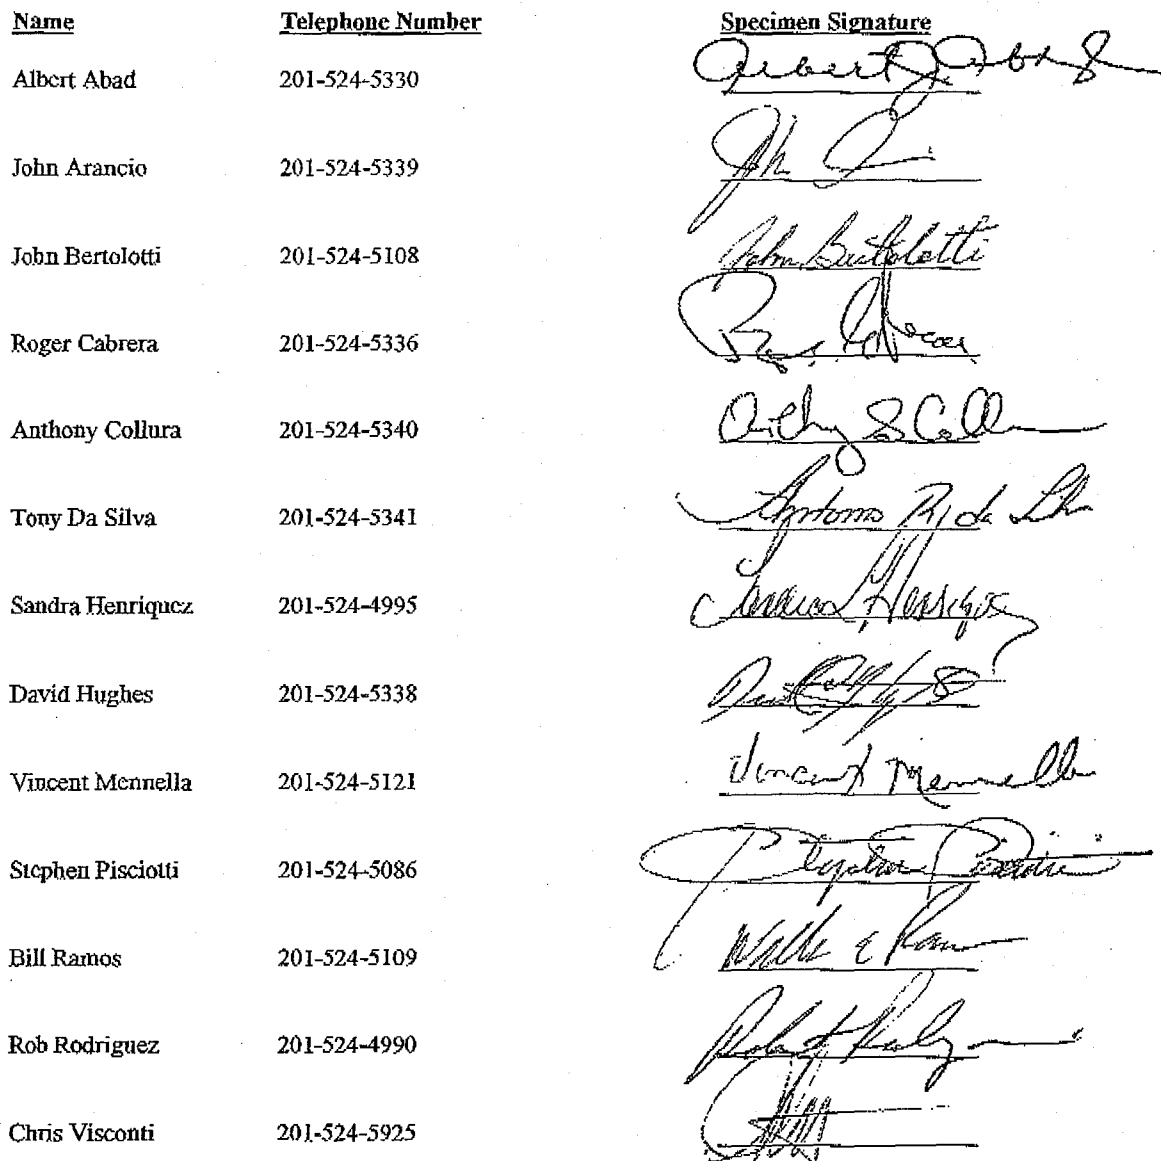 Name Telephone Number Specimen Signature
Albert Abad 201-524-5330 Albert J. Abad
John Arancio 201-524-5339 John
John Bertolotti 201-524-5108 John Bertolotti
Roger Cabrera 201-524-5336
Anthony Collura 201-524-5340
Tony Da Silva 201-524-5341 Antonio R. da Silva
Sandra Henriquez 201-524-4995 Sandra Henriquez
David Hughes 201-524-5338
Vincent Mennella 201-524-5121 Vincent Mennella
Stephen Pisciotti 201-524-5086 Stephen
Bill Ramos 201-524-5109
Rob Rodriguez 201-524-4990 Robert
Chris Visconti 201-524-5925